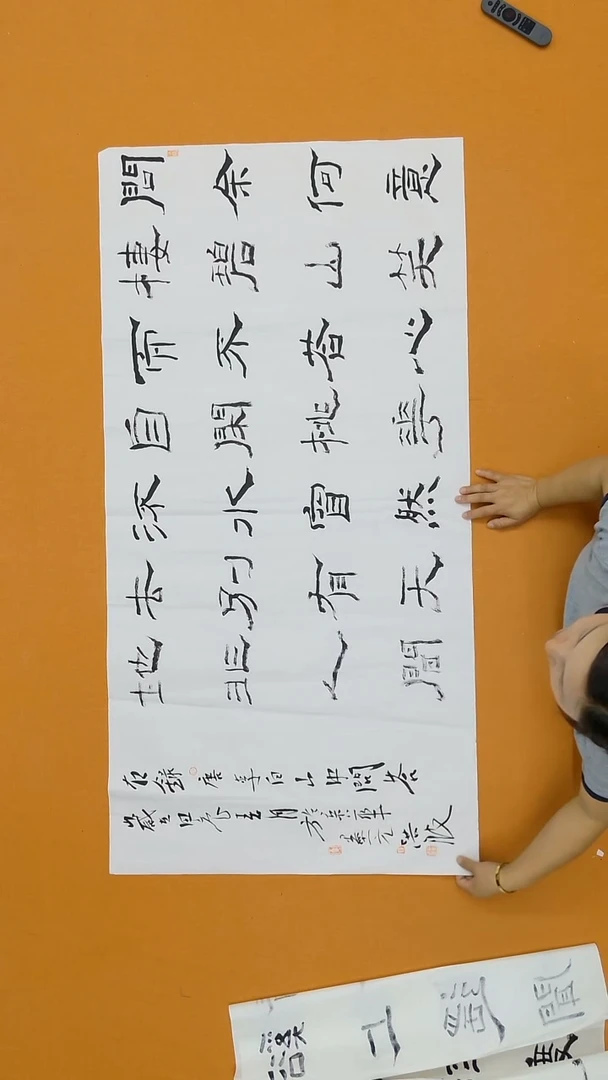 問余何意
棲碧山笑
而不答心
自閑桃華
流水窅然
去別有天
地非人間
右錄唐李白山中問答
歲乙巳 月於
洪波